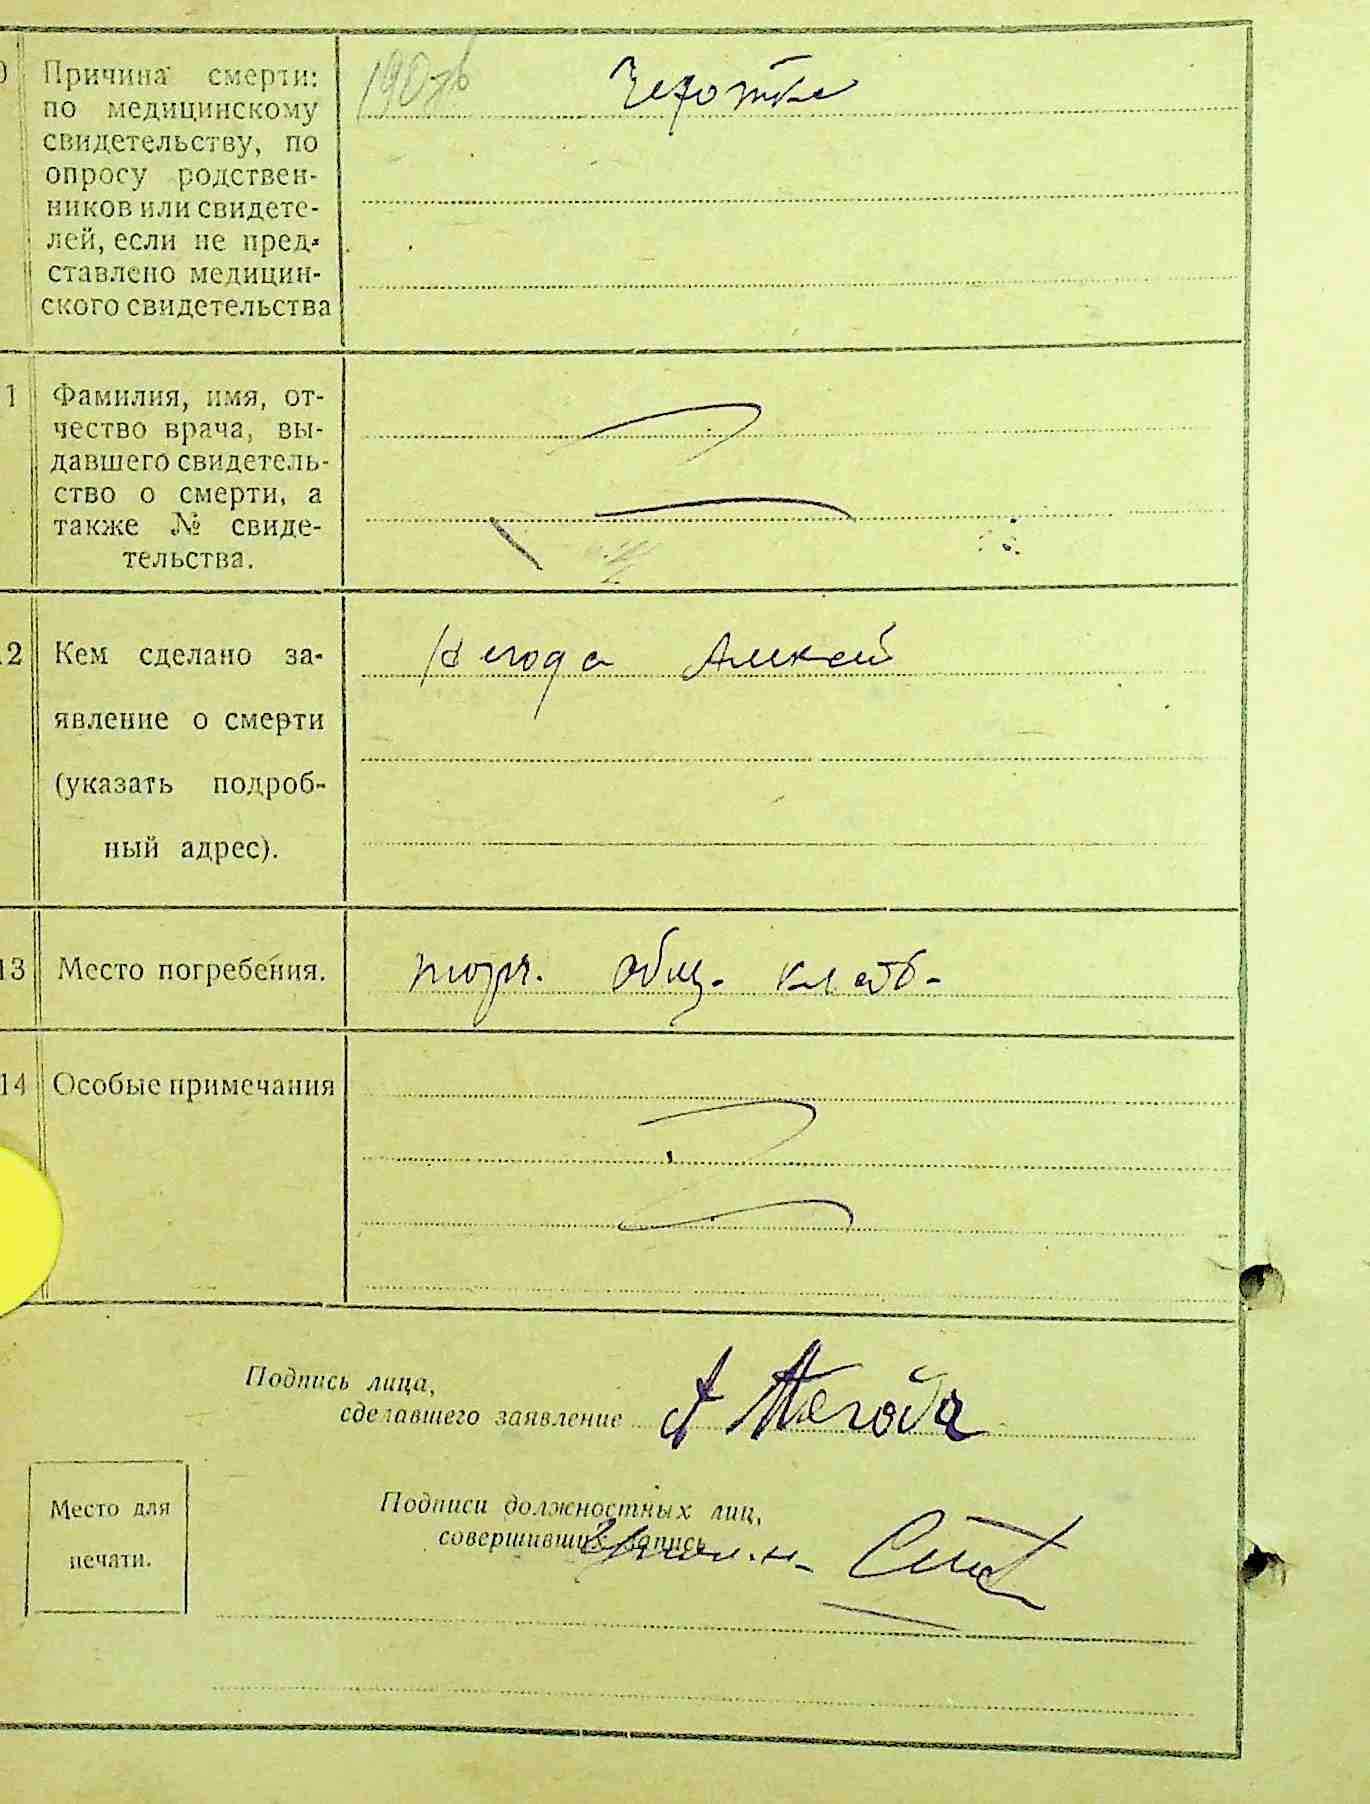 Причина смерти:
по медицинскому
свидетельству, по
опросу родствен-
ников или свидете-
лей, если не пред-
ставлено медицин-
ского свидетельства
Чехотке
11 Фамилия, имя, от-
чество врача, вы-
давшего свидетель-
ство о смерти, а
также № свиде-
тельства.
12 Кем сделано за-
явление о смерти
(указать подроб-
ный адрес).
Негода Алексей
13 Место погребения.
общ. кладб-
14 Особые примечания
Подпись лица,
сделавшего заявление А Негода
Место для
печати.
Подписи должностных лиц,
совершивших запись